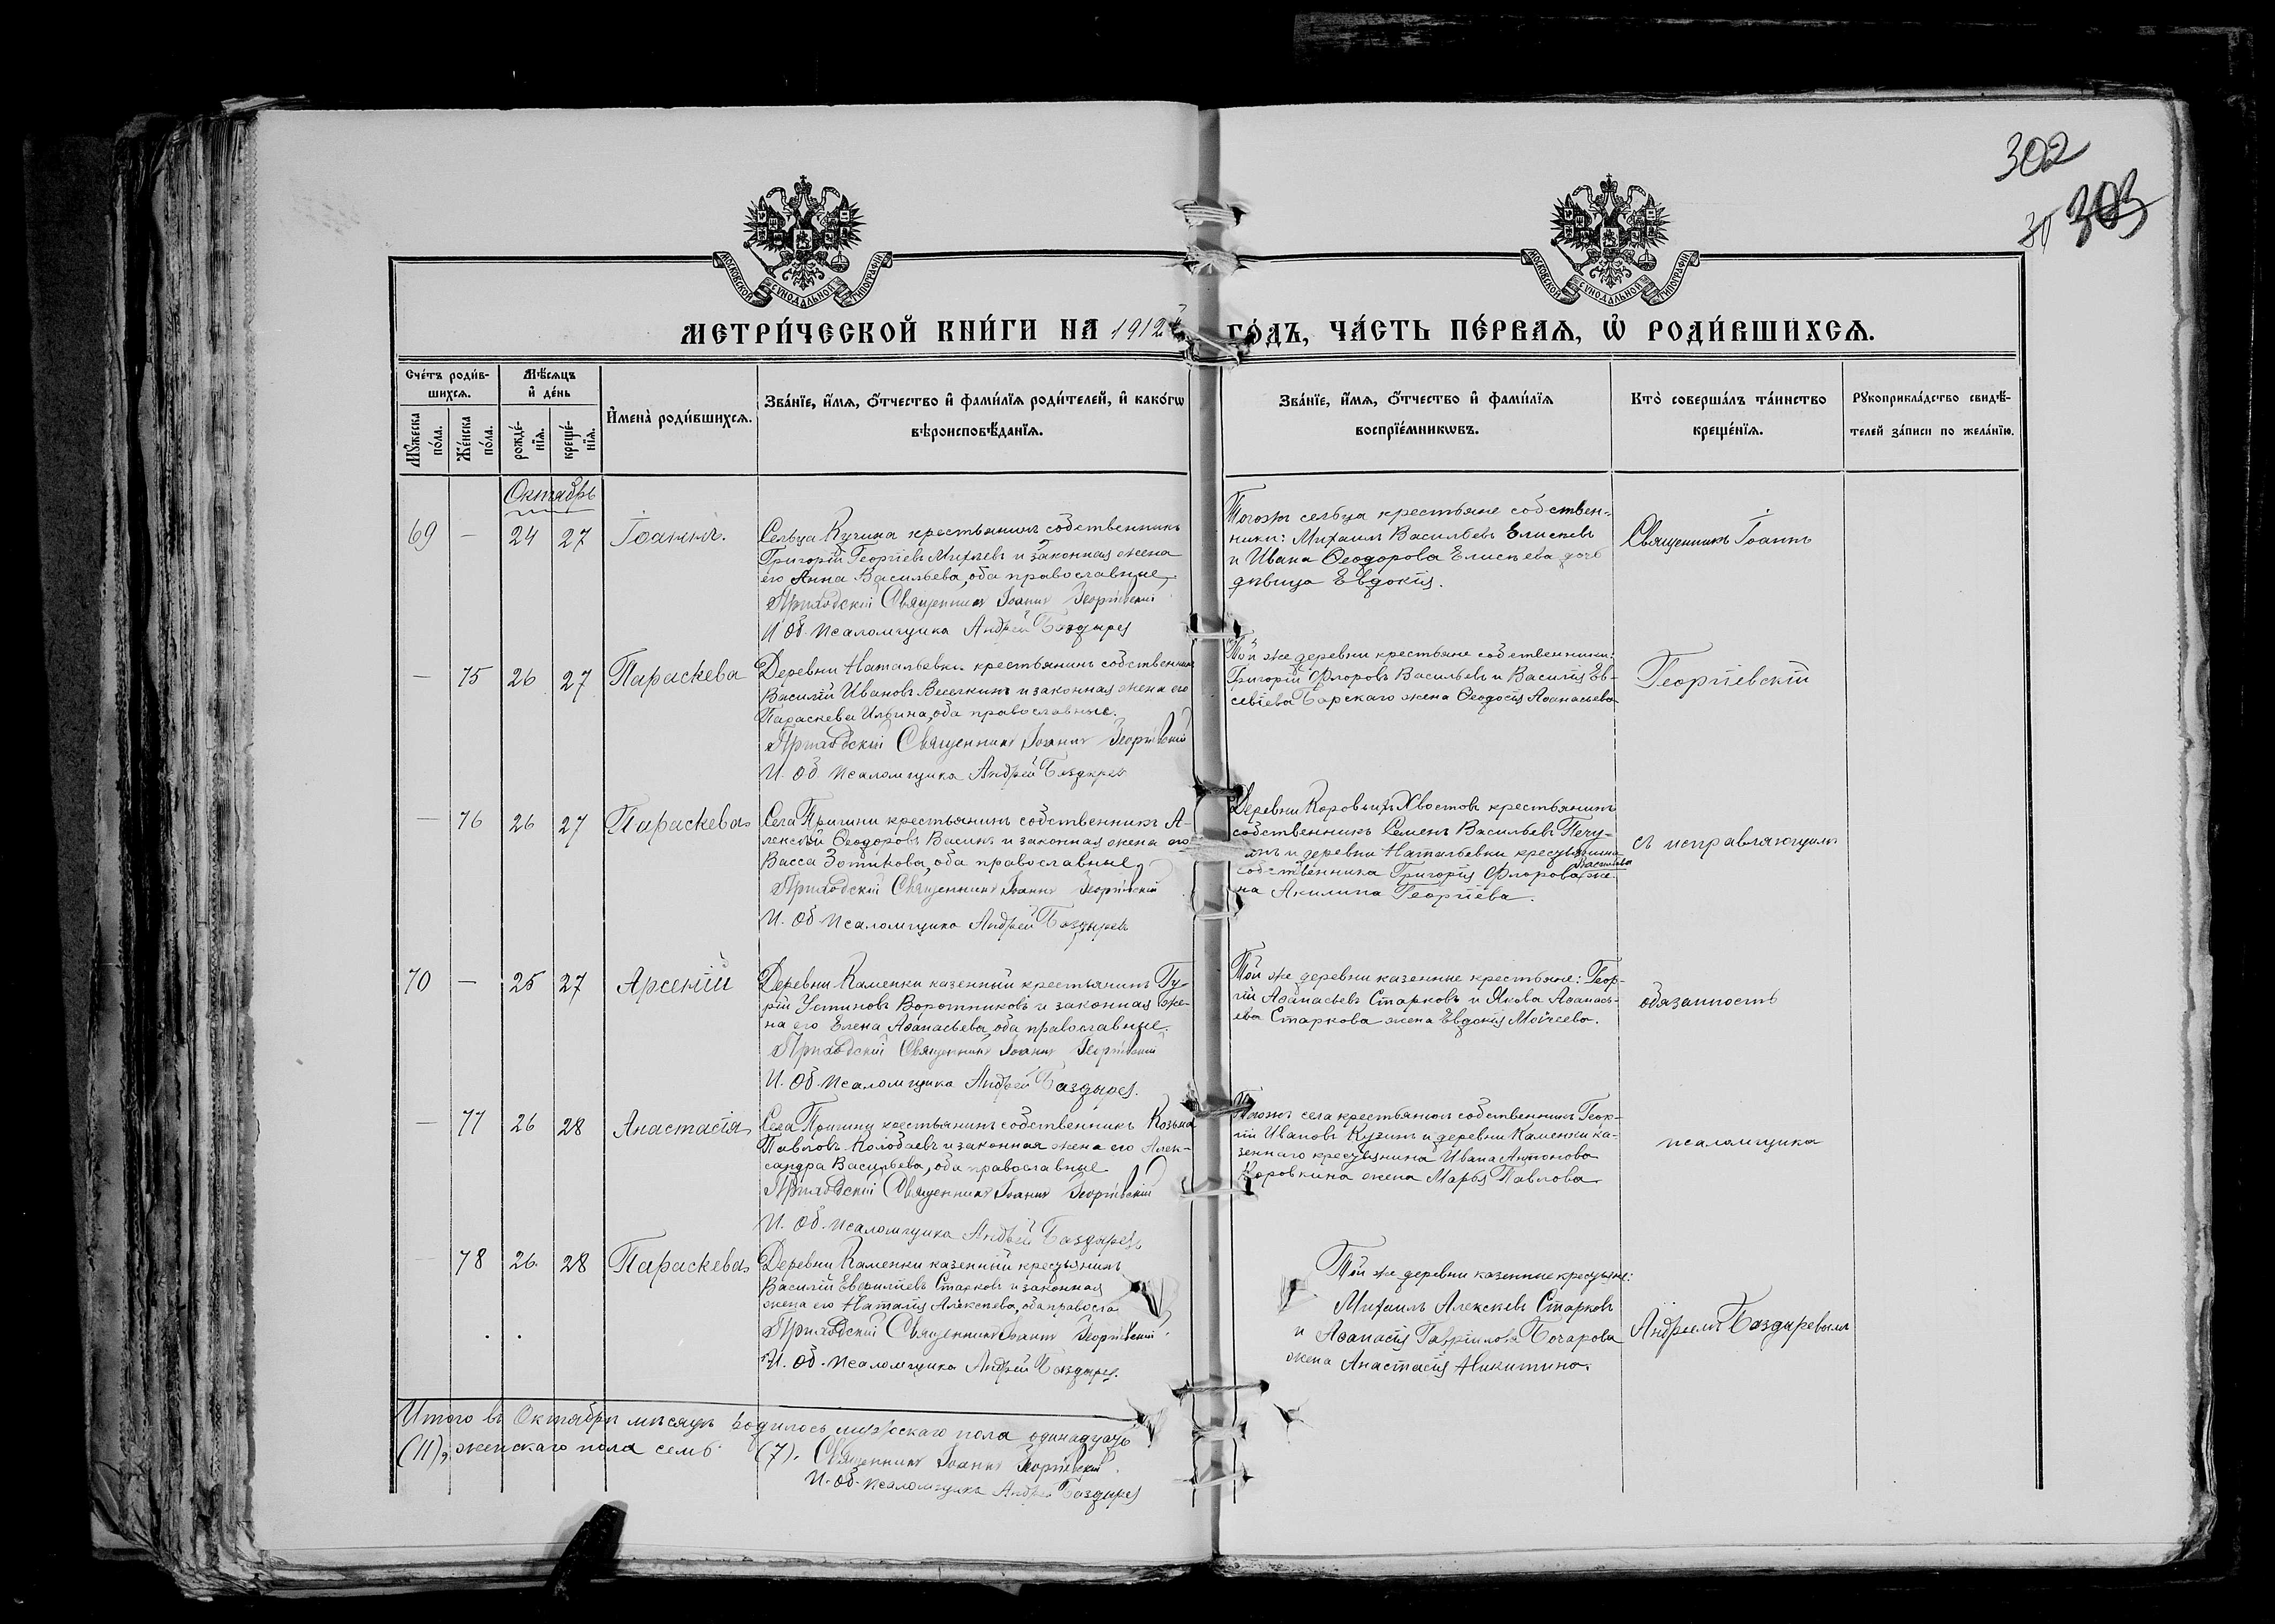 302
303
МОСКОВСКОЙ СѴНОДАЛЬНОЙ ТИПОГРАФІИ
МОСКОВСКОЙ СѴНОДАЛЬНОЙ ТИПОГРАФІИ
МЕТРИ́ЧЕСКОЙ КНИ́ГИ НА 1912й ГО́ДЪ, ЧА́СТЬ ПЕ́РВАЯ, Ѡ РОДИ́ВШИХСЯ.
Сче́тъ роди́в-
шихся.
Мꙋ́жеска по́ла.
Же́нска по́ла.
Мѣ́сяцъ
и҆ де́нь
рожде́-
нїя.
креще́-
нїя.
И҆мена̀ роди́вшихся.
Зва́нїе, и҆́мя, ѻ҆́тчество и҆ фами́лїя роди́телей, и҆ како́гѡ
вѣроисповѣ́данїя.
Зва́нїе, и҆́мя, ѻ҆́тчество и҆ фами́лїя
воспрїе́мникѡвъ.
Кто̀ соверша́лъ та́инство
креще́нїя.
Рꙋкоприкла́дство свидѣ́-
телей за́писи по жела́нїю.
Октябрь
69 — 24 27 Іоаннъ.
Сельца Кучина крестьянинъ собственникъ
Григорій Георгіевъ Михлевъ и законная жена
его Анна Васильева, оба православные
Приходскій Священникъ Іоаннъ Георгіевскій
И. Об. Псаломщика Андрей Баздырев
Тогожъ сельца крестьяне собствен-
ники: Михаилъ Васильевъ Елисѣевъ
и Ивана Ѳеодорова Елисѣева дочь
дѣвица Евдокія.
Священникъ Іоаннъ
— 75 26 27 Параскева
Деревни Натальевки крестьянинъ собственникъ
Василій Ивановъ Веселкинъ и законная жена его
Параскева Ильина, оба православные.
Приходскій Священникъ Іоаннъ Георгіевскій
И. Об. Псаломщика Андрей Баздырев
Той же деревни крестьяне собственники:
Григорій Флоровъ Васильевъ и Василія Ев-
севіева Борскаго жена Ѳеодосія Аѳанасьева
Георгіевскій
— 76 26 27 Параскева
Села Пригини крестьянинъ собственникъ А-
лексѣй Ѳеодоровъ Васинъ и законная жена его
Васса Зотикова, оба православные,
Приходскій Священникъ Іоаннъ Георгіевскій
И. Об. Псаломщика Андрей Баздырев
Деревни Коровьихъ Хвостовъ крестьянинъ
собственникъ Семенъ Васильевъ
и деревни Натальевки крестьянина
собственника Григорія Флорова Васильева же-
на Акилина Георгіева.
съ исправляющимъ
70 — 25 27 Арсеній
Деревни Каменки казенный крестьянинъ Гу-
рій Устиновъ Воротниковъ и законная же-
на его Елена Аѳанасьева, оба православные.
Приходскій Священникъ Іоаннъ Георгіевскій
И. Об. Псаломщика Андрей Баздырев.
Той же деревни казенные крестьяне: Геор-
гій Аѳанасьевъ Старковъ и Якова Аѳанась-
ева Старкова жена Евдокія Моѵсеева.
обязанность
— 77 26 28 Анастасія
Села Пригини крестьянинъ собственникъ Козьма
Павловъ Колобаевъ и законная жена его Алек-
сандра Васильева, оба православные
Приходскій Священникъ Іоаннъ Георгіевскій
И. Об. Псаломщика Андрей Баздырев
Тогожъ села крестьянинъ собственникъ Геор-
гій Ивановъ Кузинъ и деревни Каменки ка-
зеннаго крестьянина Ивана Антонова
Коровкина жена Марья Павлова
псаломщика
— 78 26 28 Параскева
Деревни Каменки казенный крестьянинъ
Василій Евѳиміевъ Старковъ и законная
жена его Наталія Алексѣева, оба правосла
Приходскій Священникъ Іоаннъ Георгіевскій
И. Об. Псаломщика Андрей Баздырев.
Той же деревни казенные крестьяне:
Михаилъ Алексѣевъ Старковъ
и Аѳанасія Гавріилова Бочарова
жена Анастасія Никитина.
Андреемъ Баздыревымъ
Итого въ Октябрѣ мѣсяцѣ родилось мужескаго пола одинадцать
(11), женскаго пола семь (7). Священникъ Іоаннъ Георгіевскій.
И. Об. псаломщика Андрей Баздырев